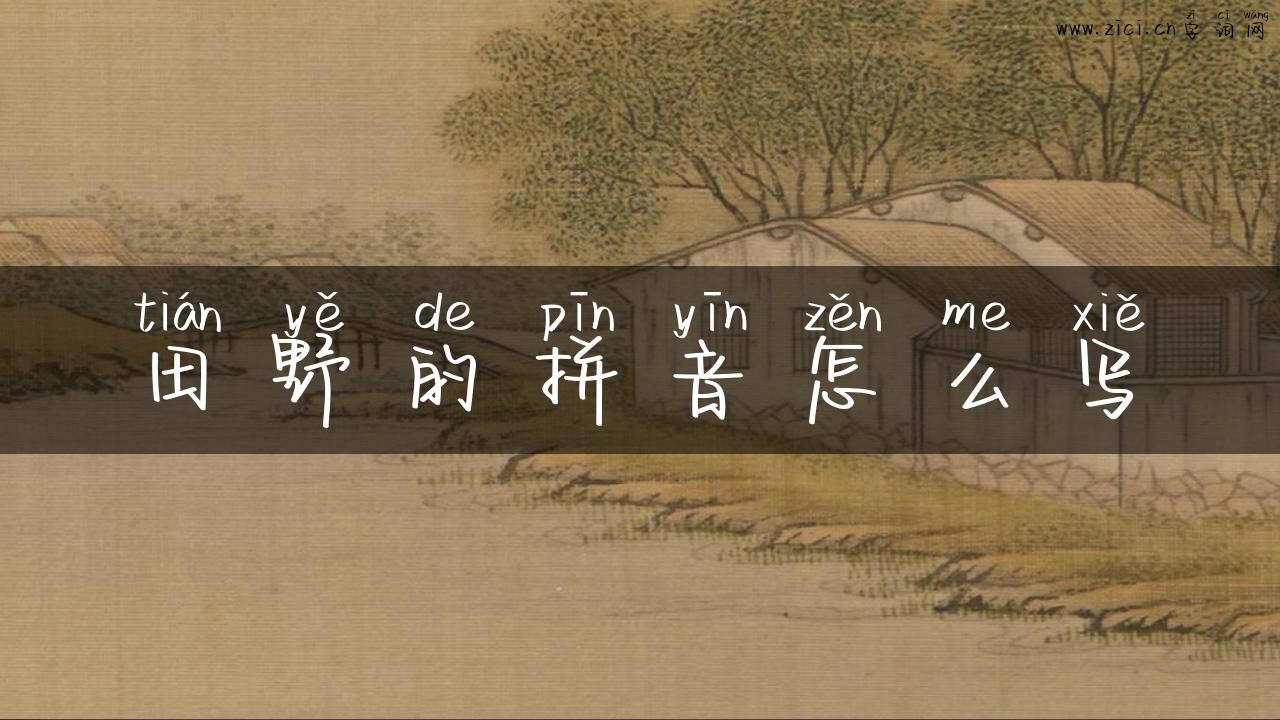 zì cí wǎng
www.zici.cn字词网
tián yě de pīn yīn zěn me xiě
田野的拼音怎么写